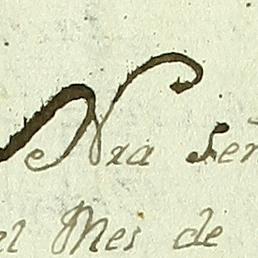 Nra señ
el Mes de